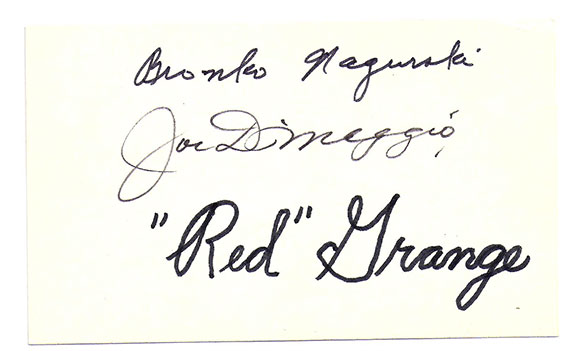 Bronko Nagurski
Joe DiMaggio
"Red" Grange